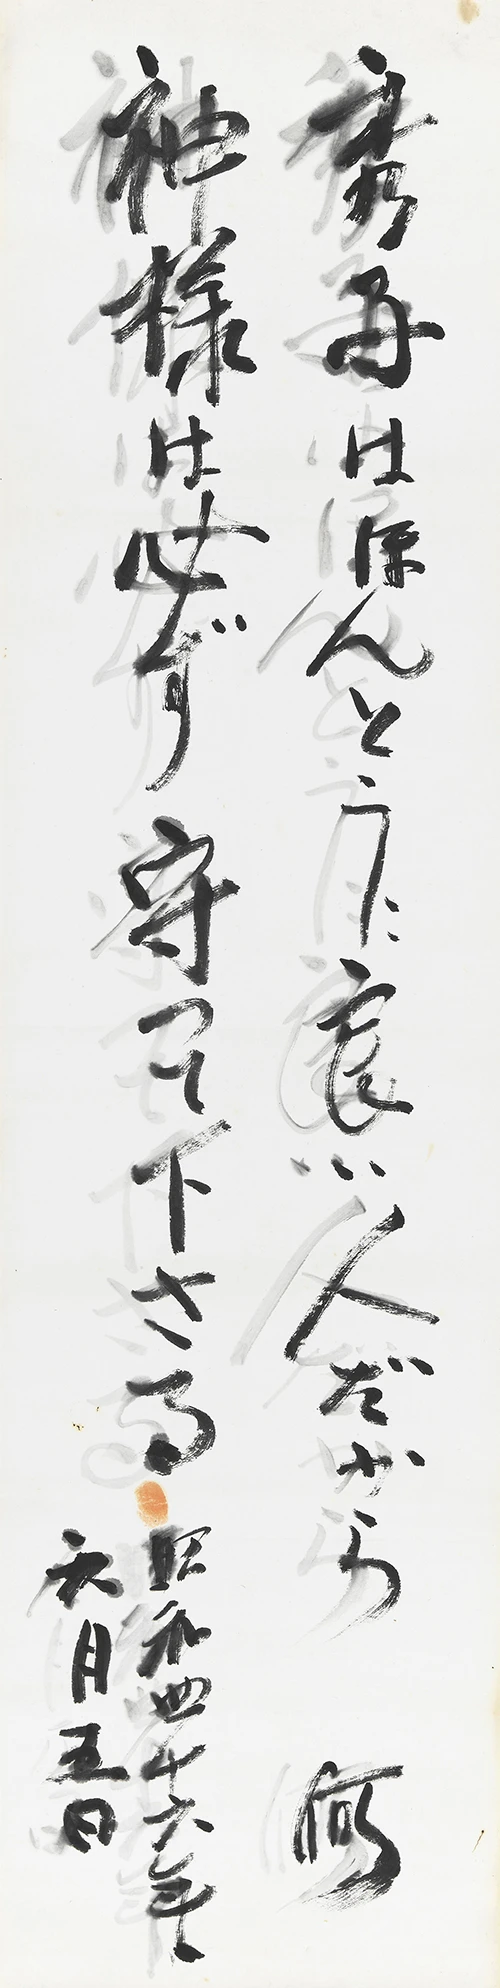 秀子はほんとうに良い人だから 何
神様は必ず守って下さる
昭和四十六年
六月五日